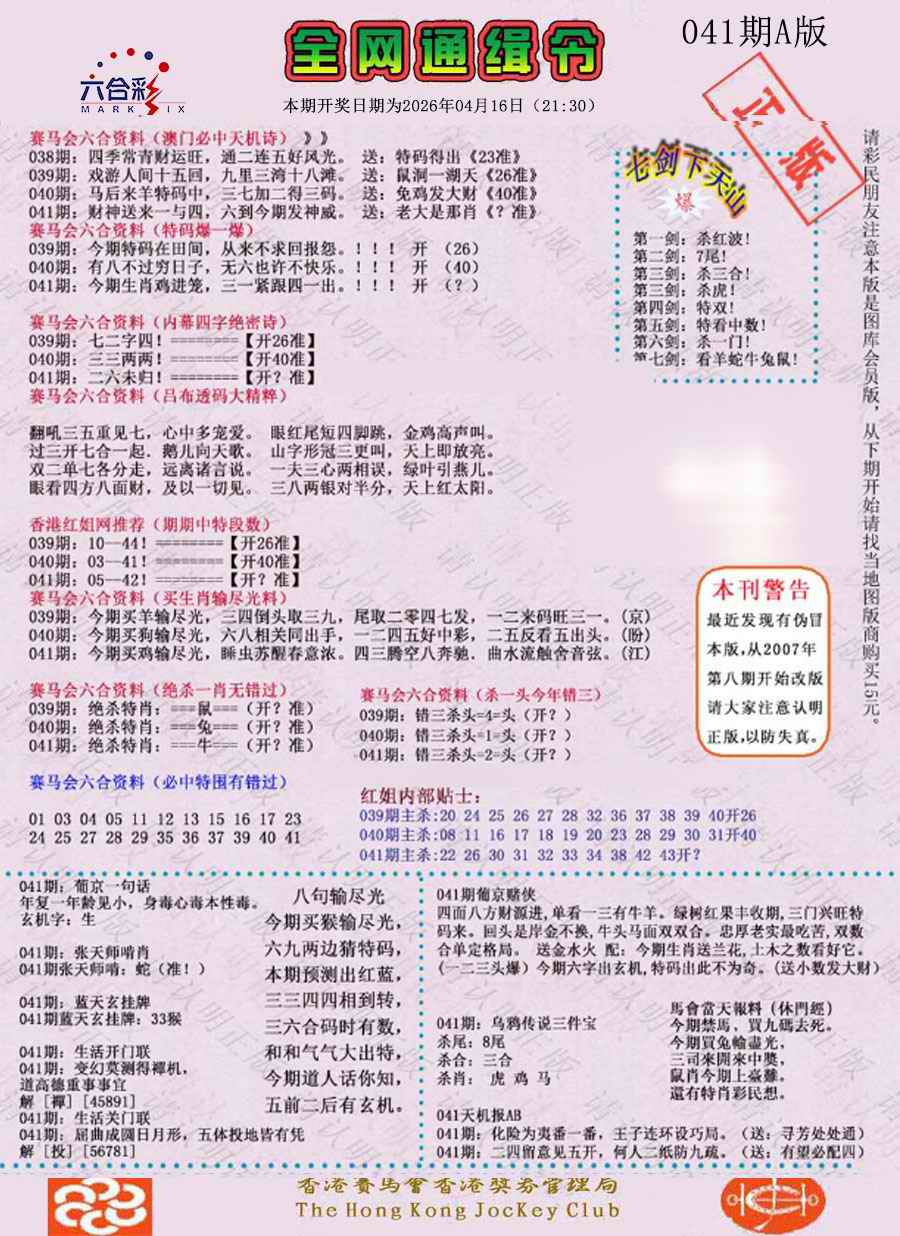 全网通缉令
041期A版
六合彩
MARK SIX
本期开奖日期为2026年04月16日（21:30）
正版
赛马会六合资料（澳门必中天机诗）》》
038期：四季常青财运旺，通二连五好风光。 送：特码得出《23准》
039期：戏游人间十五回，九里三湾十八滩。 送：鼠洞一湖天《26准》
040期：马后来羊特码中，三七加二得三码。 送：免鸡发大财《40准》
041期：财神送来一与四，六到今期发神威。 送：老大是那肖《？准》
赛马会六合资料（特码爆一爆）
039期：今期特码在田间，从来不求回报怨。！！！ 开 （26）
040期：有八不过穷日子，无六也许不快乐。！！！ 开 （40）
041期：今期生肖鸡进笼，三一紧跟四一出。！！！ 开 （？）
赛马会六合资料（内幕四字绝密诗）
039期：七二字四！========【开26准】
040期：三三两两！========【开40准】
041期：二六未归！========【开？准】
赛马会六合资料（吕布透码大精粹）
翻吼三五重见七，心中多宠爱。 眼红尾短四脚跳，金鸡高声叫。
过三开七合一起．鹅儿向天歌。 山字形冠三更叫，天上即放亮。
双二单七各分走，远离诸言说。 一夫三心两相误，绿叶引燕儿。
眼看四方八面财，及以一切见。 三八两银对半分，天上红太阳。
香港红姐网推荐（期期中特段数）
039期：10—44！========【开26准】
040期：03—41！========【开40准】
041期：05—42！========【开？准】
赛马会六合资料（买生肖输尽光料）
039期：今期买羊输尽光，三四倒头取三九，尾取二零四七发，一二来码旺三一。(京)
040期：今期买狗输尽光，六八相关同出手，一二四五好中彩，二五反看五出头。(盼)
041期：今期买鸡输尽光，睡虫苏醒春意浓。四三腾空八奔驰．曲水流触舍音弦。(江)
赛马会六合资料（绝杀一肖无错过）
039期：绝杀特肖：===鼠===（开？准）
040期：绝杀特肖：===兔===（开？准）
041期：绝杀特肖：===牛===（开？准）
赛马会六合资料（杀一头今年错三）
039期：错三杀头=4=头（开？）
040期：错三杀头=1=头（开？）
041期：错三杀头=2=头（开？）
赛马会六合资料（必中特围有错过）
01 03 04 05 11 12 13 15 16 17 23
24 25 27 28 29 35 36 37 39 40 41
红姐内部贴士：
039期主杀:20 24 25 26 27 28 32 36 37 38 39 40开26
040期主杀:08 11 16 17 18 19 20 23 28 29 30 31开40
041期主杀:22 26 30 31 32 33 34 38 42 43开？
七剑下天山
爆
第一剑：杀红波！
第二剑：7尾！
第三剑：杀三合！
第三剑：杀虎！
第四剑：特双！
第五剑：特看中数！
第六剑：杀一门！
第七剑：看羊蛇牛兔鼠！
请彩民朋友注意本版是图库会员版，从下期开始请找当地图版商购买15元。
本刊警告
最近发现有伪冒
本版，从2007年
第八期开始改版
请大家注意认明
正版，以防失真。
041期：葡京一句话
年复一年龄见小，身毒心毒本性毒。
玄机字：生
041期：张天师啃肖
041期张天师啃：蛇（准！）
041期：蓝天玄挂牌
041期蓝天玄挂牌：33猴
041期：生活开门联
041期：变幻莫测得禪机，
道高德重事事宜
解［禪］[45891]
041期：生活关门联
041期：屈曲成圆日月形，五体投地皆有凭
解［投］[56781]
八句输尽光
今期买猴输尽光，
六九两边猜特码，
本期预测出红蓝，
三三四四相到转，
三六合码时有数，
和和气气大出特，
今期道人话你知，
五前二后有玄机。
041期葡京赌侠
四面八方财源进，单看一三有牛羊。绿树红果丰收期，三门兴旺特
码来。回头是岸金不换，牛头马面双双合。忠厚老实最吃苦，双数
合单定格局。 送金水火 配：今期生肖送兰花，土木之数看好它。
(一二三头爆）今期六字出玄机，特码出此不为奇。(送小数发大财)
041期：乌鸦传说三件宝
杀尾：8尾
杀合：三合
杀肖： 虎 鸡 马
馬會當天報料（休門經）
今期禁馬，買九碼去死。
今期買兔輸盡光。
三司來開來中獎，
鼠肖今期上臺難。
還有特肖彩民想。
041天机报AB
041期：化险为夷番一番，王子连环设巧局。（送：寻芳处处通）
041期：二四留意见五开，何人二纸防九疏。（送：有望必配四）
香港賽馬會香港獎券管理局
The Hong Kong JocKey Club